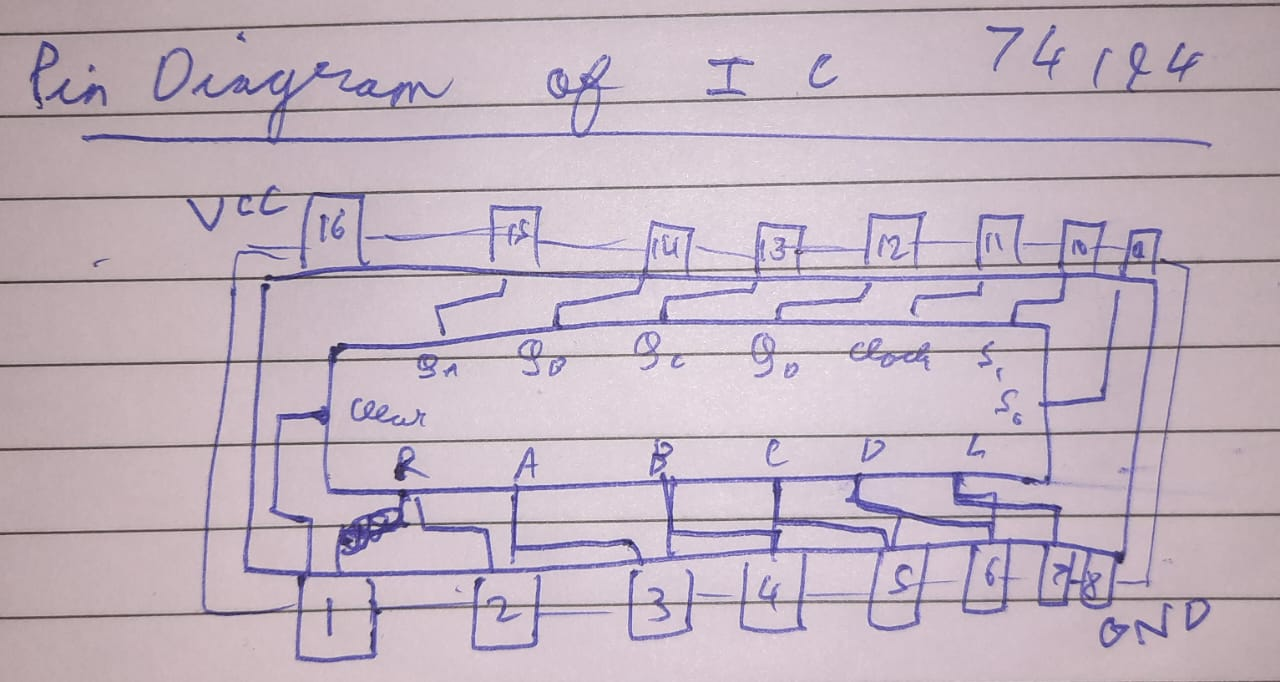 Pin Diagram of IC 74194
VCC 16 15 14 13 12 11 10 9
QA QB QC QD Clock S1
Clear S0
R A B C D L
1 2 3 4 5 6 7 8
GND